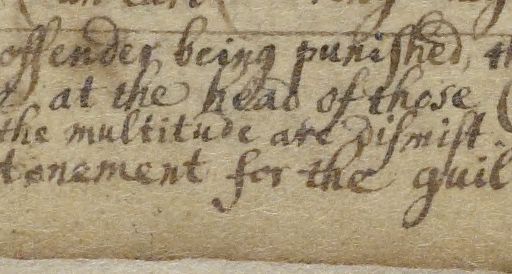 offender being punished, th
at the head of those
the multitude are dismist.
tonement for the guil